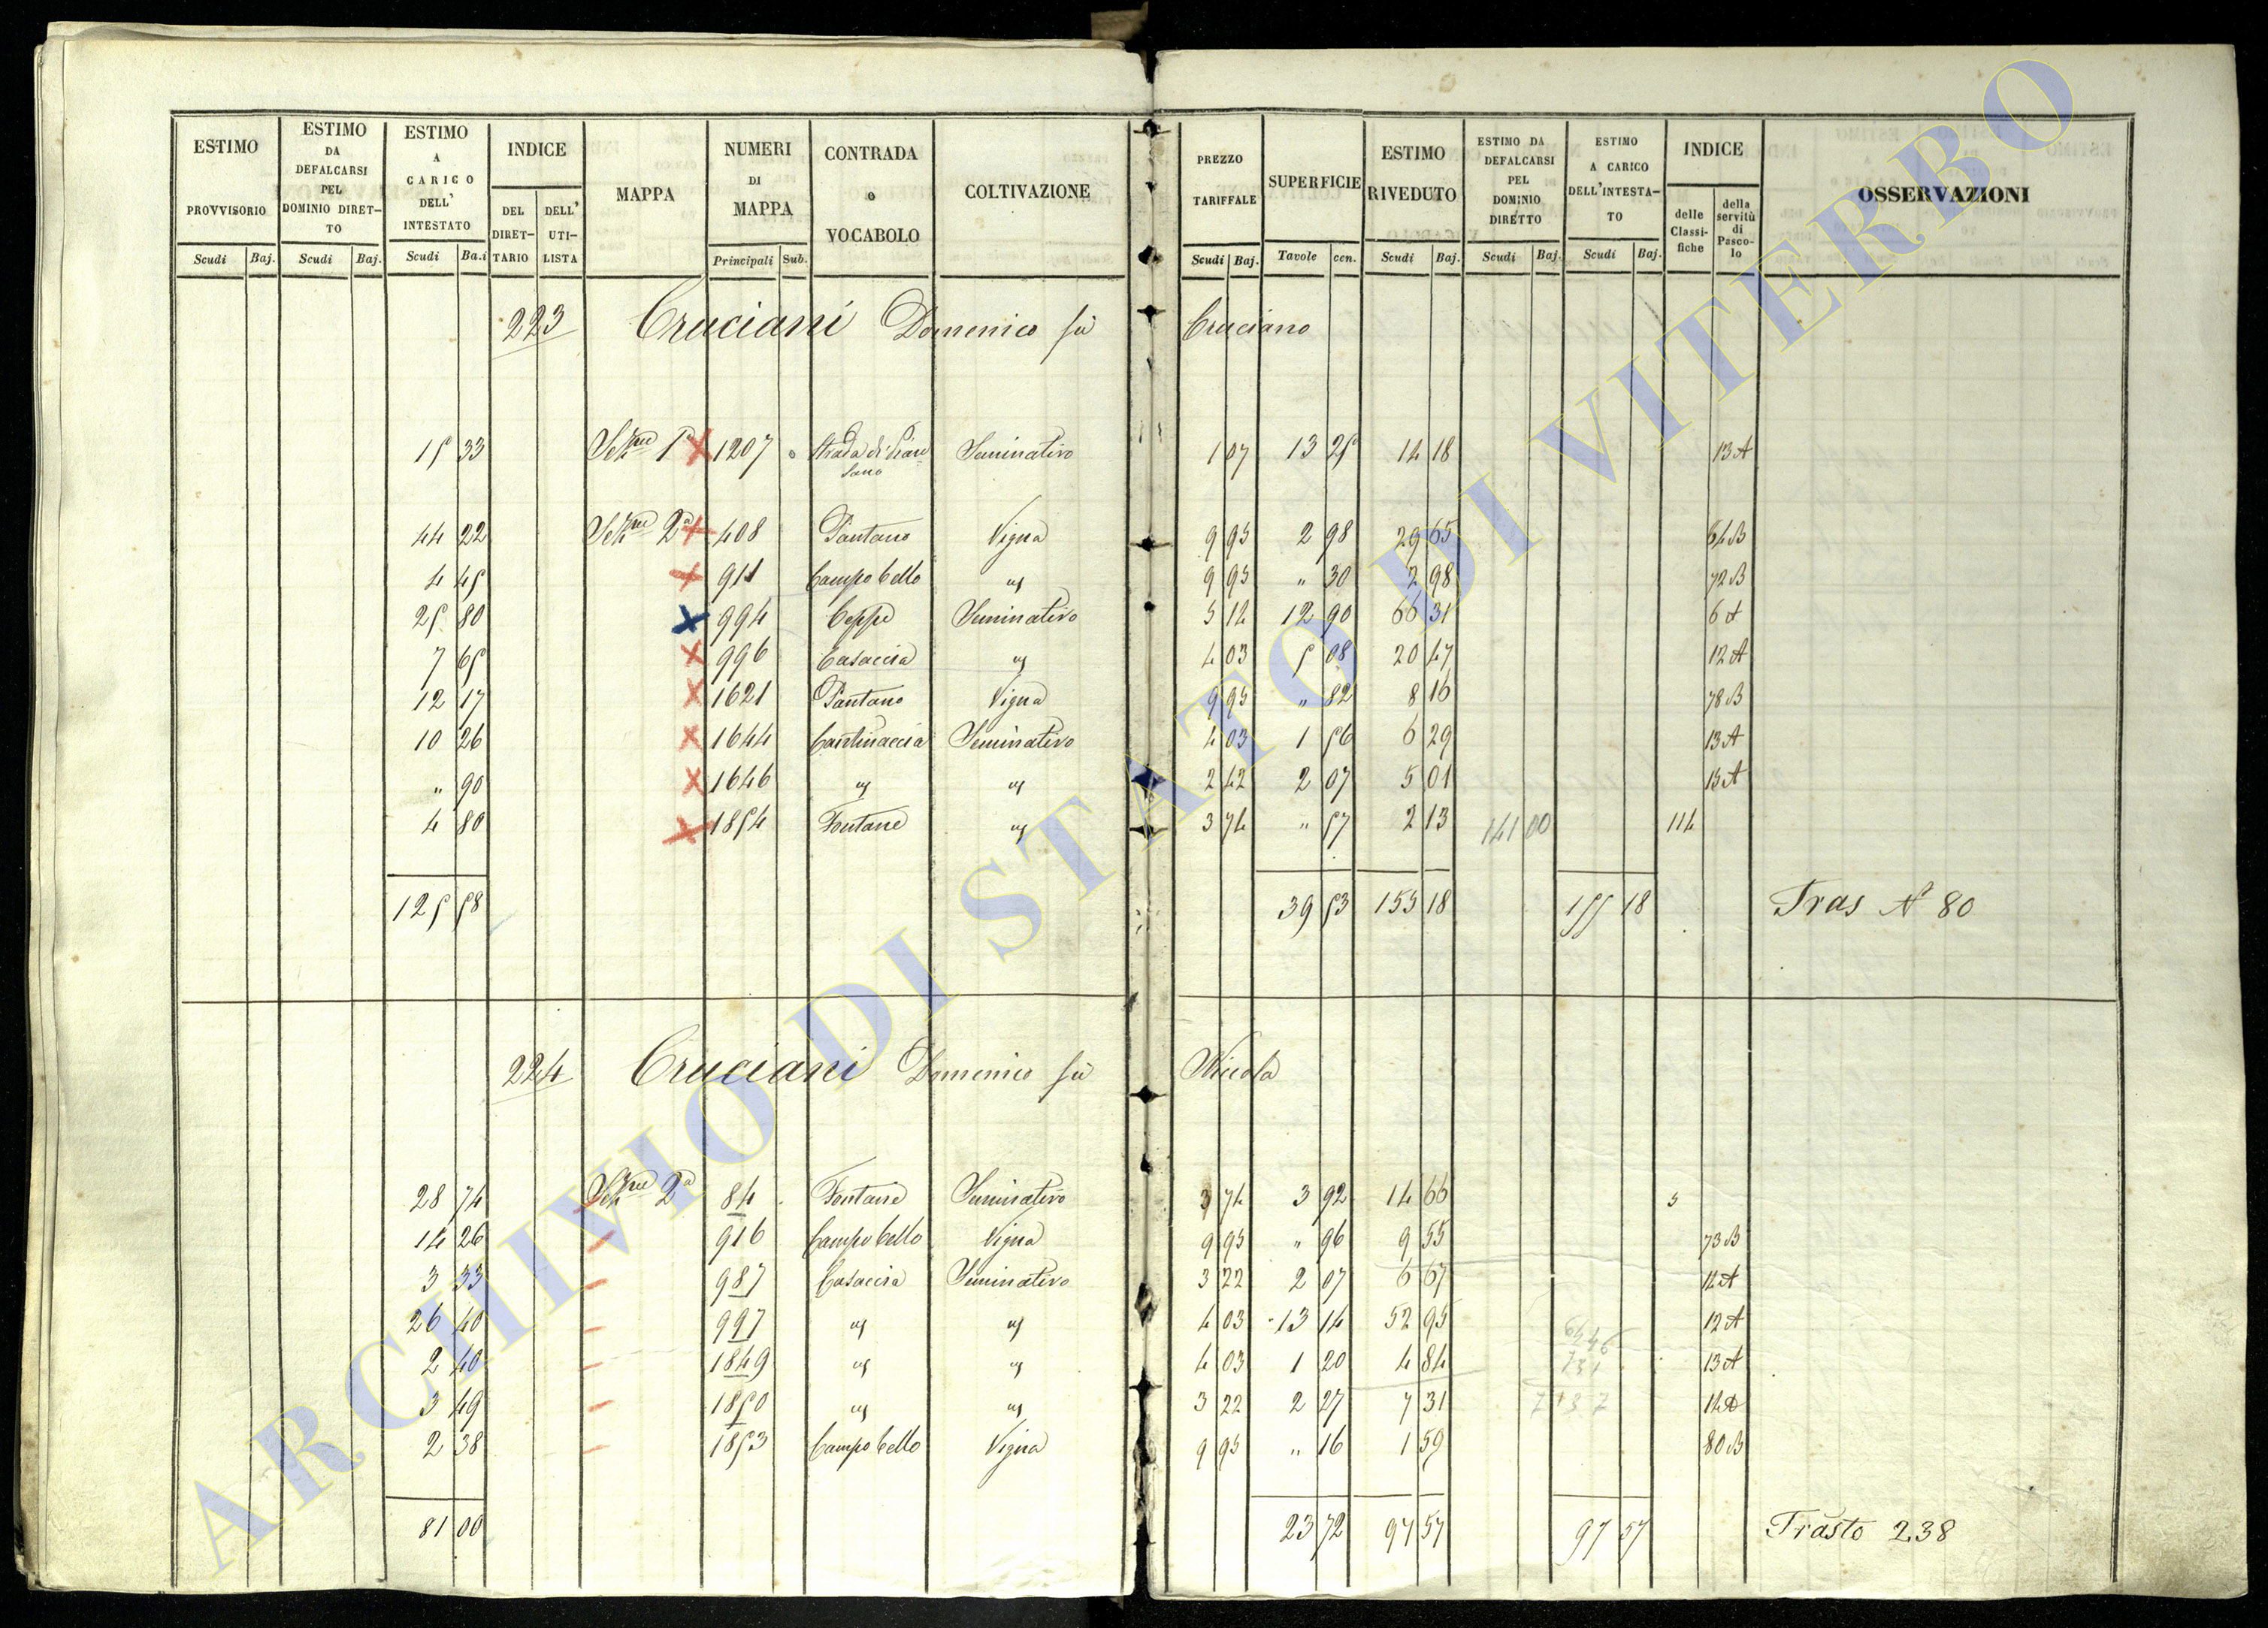 ESTIMO PROVVISORIO Scudi Baj.
ESTIMO DA DEFALCARSI PEL DOMINIO DIRET-TO Scudi Baj.
ESTIMO A CARICO DELL' INTESTATO Scudi Ba.i
INDICE DEL DIRET-TARIO DELL' UTI-LISTA
MAPPA
NUMERI DI MAPPA Principali Sub.
CONTRADA o VOCABOLO
COLTIVAZIONE
PREZZO TARIFFALE Scudi Baj.
SUPERFICIE Tavole cen.
ESTIMO RIVEDUTO Scudi Baj.
ESTIMO DA DEFALCARSI PEL DOMINIO DIRETTO Scudi Baj.
ESTIMO A CARICO DELL'INTESTA-TO Scudi Baj.
INDICE delle Classi-fiche della servitù di Pasco-lo
OSSERVAZIONI
223 Cruciani Domenico fù Cruciano
15 33 Sezne 1a 1207 Strada di Pian sano Seminativo 1 07 13 25 14 18 13 A
44 22 Sezne 2a 408 Pantano Vigna 9 95 2 98 29 65 64 B
4 45 911 Campo bello " 9 95 " 30 2 98 72 B
25 80 994 Ceppe Seminativo 5 14 12 90 66 31 6 A
7 65 996 Casaccia " 4 03 5 08 20 47 12 A
12 17 1621 Pantano Vigna 9 95 " 82 8 16 78 B
10 26 1644 Cantinaccia Seminativo 4 03 1 56 6 29 13 A
" 90 1646 " " 2 42 2 07 5 01 15 A
4 80 1854 Fontane " 3 74 " 57 2 13 141 00 114
125 58 39 53 155 18 155 18 Tras N 80
224 Cruciani Domenico fù Nicola
28 74 Sezne 2a 84 Fontane Seminativo 3 74 3 92 14 66 5
14 26 916 Campo bello Vigna 9 95 " 96 9 55 73 B
3 33 987 Casaccia Seminativo 3 22 2 07 6 67 14 A
26 40 997 " " 4 03 13 14 52 95 12 A
2 40 1849 " " 4 03 1 20 4 84 13 A
3 49 1850 " " 3 22 2 27 7 31 14 A
2 38 1853 Campo bello Vigna 9 95 " 16 1 59 80 B
81 00 23 72 97 57 97 57 Trasto 238
ARCHIVIO DI STATO DI VITERBO